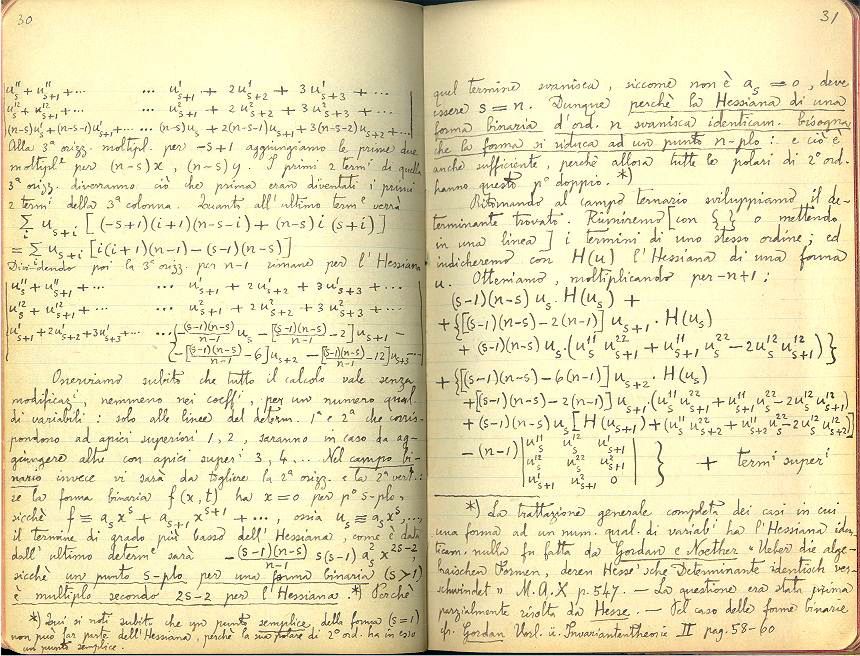 30
u_s^{11} + u_{s+1}^{11} + ... ... u_{s+1}^1 + 2u_{s+2}^1 + 3u_{s+3}^1 + ...
u_s^{12} + u_{s+1}^{12} + ... ... u_{s+1}^2 + 2u_{s+2}^2 + 3u_{s+3}^2 + ...
(n-s)u_s^1 + (n-s-1)u_{s+1}^1 + ... ... (n-s)u_s + 2(n-s-1)u_{s+1} + 3(n-s-2)u_{s+2} + ...
Alla 3ª orizz. moltipl. per -s+1 aggiungiamo le prime due
moltipl.e per (n-s)x, (n-s)y. I primi 2 termi di quella
3ª orizz. diverranno ciò che prima eran diventati i primi
2 termi della 3ª colonna. Quanto all'ultimo terme verrà
∑_i u_{s+i} [(-s+1)(i+1)(n-s-i) + (n-s) i (s+i)]
= ∑ u_{s+i} [i(i+1)(n-1) - (s-1)(n-s)]
Dividendo poi la 3ª orizz. per n-1 rimane per l'Hessiana
u_s^{11} + u_{s+1}^{11} + ... ... u_{s+1}^1 + 2u_{s+2}^1 + 3u_{s+3}^1 + ...
u_s^{12} + u_{s+1}^{12} + ... ... u_{s+1}^2 + 2u_{s+2}^2 + 3u_{s+3}^2 + ...
u_{s+1}^1 + 2u_{s+2}^1 + 3u_{s+3}^1 + ... ... {-(s-1)(n-s)/(n-1) u_s - [(s-1)(n-s)/(n-1) - 2] u_{s+1} -
{-[(s-1)(n-s)/(n-1) - 6] u_{s+2} - [(s-1)(n-s)/(n-1) - 12] u_{s+3} - ...
Osserviamo subito che tutto il calcolo vale senza
modificazi, nemmeno nei coeffi, per un numero qual.
di variabili: solo alle linee del determ. 1ª e 2ª che corris-
pondono ad apici superiori 1, 2, saranno in caso da ag-
giungere altre con apici superi 3, 4, ... Nel campo bi-
nario invece vi sarà da togliere la 2ª orizz. e la 2ª vert.:
se la forma binaria f(x,t) ha x=0 per pº s-plo,
sicchè f ≡ a_s x^s + a_{s+1} x^{s+1} + ..., ossia u_s ≡ a_s x^s, ...,
il termine di grado più basso dell'Hessiana, come è dato
dall'ultimo determe sarà - (s-1)(n-s)/(n-1) s(s-1) a_s^2 x^{2s-2}
sicchè un punto s-plo per una forma binaria (s>1)
è multiplo secondo 2s-2 per l'Hessiana. *) Perchè
*) Qui si noti subito che un punto semplice della forma (s=1)
non può far parte dell'Hessiana, perchè la sua polare di 2º ord. ha in esso
un punto semplice.
31
quel termine svanisca, siccome non è a_s = 0, deve
essere s = n. Dunque perchè la Hessiana di una
forma binaria d'ord. n svanisca identicam. bisogna
che la forma si riduca ad un punto n-plo: e ciò è
anche sufficiente, perchè allora tutte le polari di 2º ord.
hanno questo pº doppio. *)
Ritornando al campo ternario sviluppiamo il de-
terminante trovato. Riuniremo [con { } o mettendo
in una linea] i termini di uno stesso ordine; ed
indicheremo con H(u) l'Hessiana di una forma
u. Otteniamo, moltiplicando per -n+1:
(s-1)(n-s) u_s . H(u_s) +
+ {[(s-1)(n-s) - 2(n-1)] u_{s+1} . H(u_s)
+ (s-1)(n-s) u_s . (u_s^{11} u_{s+1}^{22} + u_{s+1}^{11} u_s^{22} - 2u_s^{12} u_{s+1}^{12})}
+ {[(s-1)(n-s) - 6(n-1)] u_{s+2} . H(u_s)
+ [(s-1)(n-s) - 2(n-1)] u_{s+1} . (u_s^{11} u_{s+1}^{22} + u_{s+1}^{11} u_s^{22} - 2u_s^{12} u_{s+1}^{12})
+ (s-1)(n-s) u_s [H(u_{s+1}) + (u_s^{11} u_{s+2}^{22} + u_{s+2}^{11} u_s^{22} - 2u_s^{12} u_{s+2}^{12})]
- (n-1) | u_s^{11} u_s^{12} u_{s+1}^1 |
| u_s^{12} u_s^{22} u_{s+1}^2 | } + termi superi
| u_{s+1}^1 u_{s+1}^2 0 |
*) La trattazione generale completa dei casi in cui
una forma ad un num. qual. di variabi ha l'Hessiana iden-
ticam. nulla fu fatta da Gordan e Noether « Ueber die alge-
braischen Formen, deren Hesse'sche Determinante identisch ver-
schwindet » M.A. X p. 547. - La questione era stata prima
parzialmente risolta da Hesse. - Pel caso delle forme binarie
cfr. Gordan Vorl. ü. Invariantentheorie II pag. 58-60